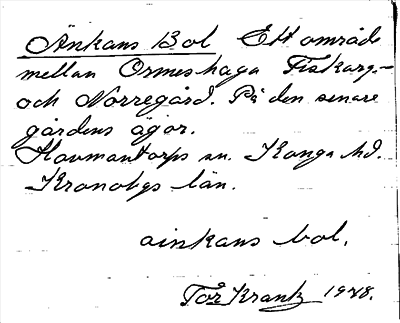 Änkans Bol Ett område
mellan Ormeshaga Fiskareg.-
och Norregård. På den senare
gårdens ägor.
Hovmantorps sn. Konga hd.
Kronobgs län.
ainkans bol.
Tor Krantz 1928.